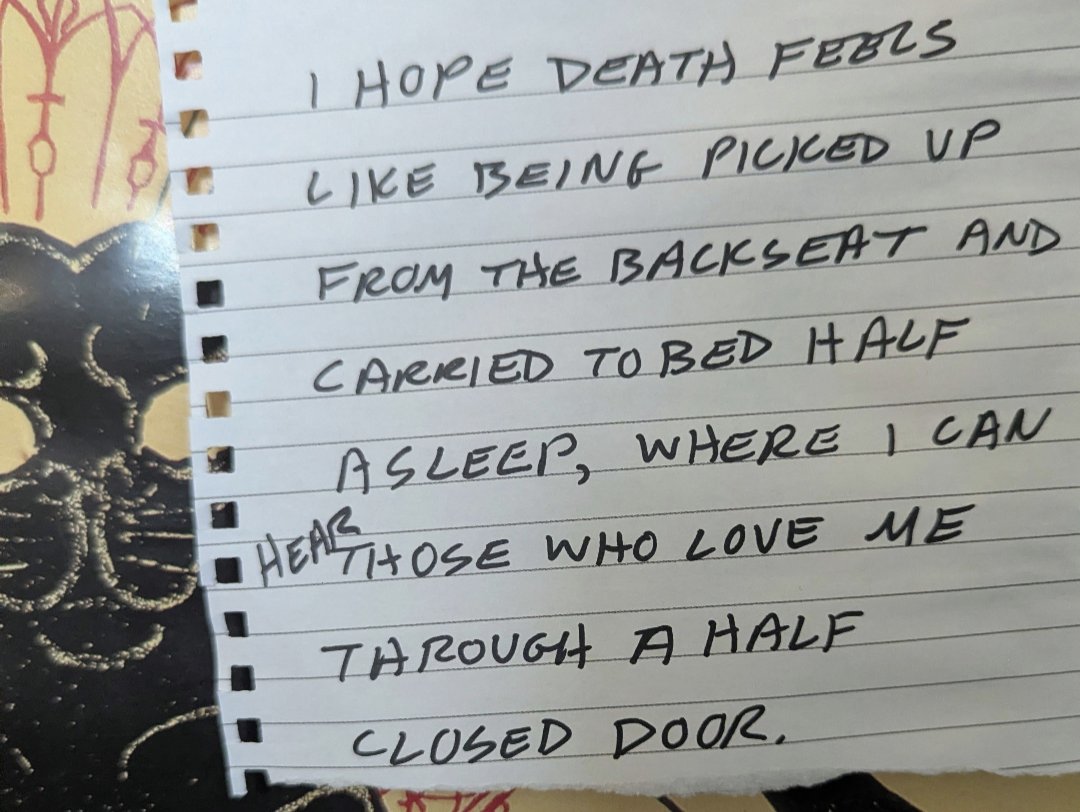 I HOPE DEATH FEELS
LIKE BEING PICKED UP
FROM THE BACKSEAT AND
CARRIED TO BED HALF
ASLEEP, WHERE I CAN
HEAR THOSE WHO LOVE ME
THROUGH A HALF
CLOSED DOOR.